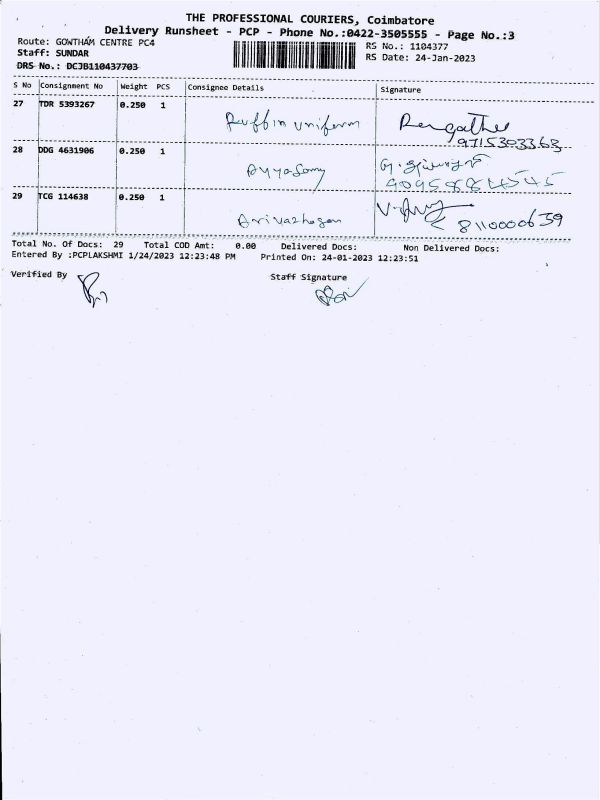 THE PROFESSIONAL COURIERS, Coimbatore
Delivery Runsheet - PCP - Phone No.:0422-3505555 - Page No.:3
Route: GOWTHAM CENTRE PC4
RS No.: 1104377
Staff: SUNDAR
RS Date: 24-Jan-2023
DRS No.: DCJB110437703
S No Consignment No Weight PCS Consignee Details Signature
27 TDR 5393267 0.250 1
Puffin uniform
9715303363
28 DDG 4631906 0.250 1
Ayyasamy
9095884545
29 TCG 114638 0.250 1
Arivazhagan 8110000639
Total No. Of Docs: 29 Total COD Amt: 0.00 Delivered Docs: Non Delivered Docs:
Entered By :PCPLAKSHMI 1/24/2023 12:23:48 PM Printed On: 24-01-2023 12:23:51
Verified By Staff Signature